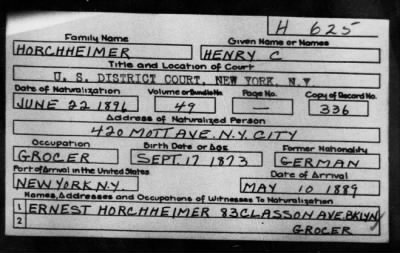 H 625
Family Name Given Name or Names
HORCHHEIMER HENRY C
Title and Location of Court
U. S. DISTRICT COURT, NEW YORK, N.Y
Date of Naturalization Volume or Bundle No. Page No. Copy of Record No.
JUNE 22 1896 49 — 336
Address of Naturalized Person
420 MOTT AVE. N.Y. CITY
Occupation Birth Date or Age Former Nationality
GROCER SEPT. 17 1873 GERMAN
Port of Arrival in the United States Date of Arrival
NEW YORK N.Y. MAY 10 1889
Names, Addresses and Occupations of Witnesses To Naturalization
1 ERNEST HORCHHEIMER 83 CLASSON AVE. BKLYN
2 GROCER